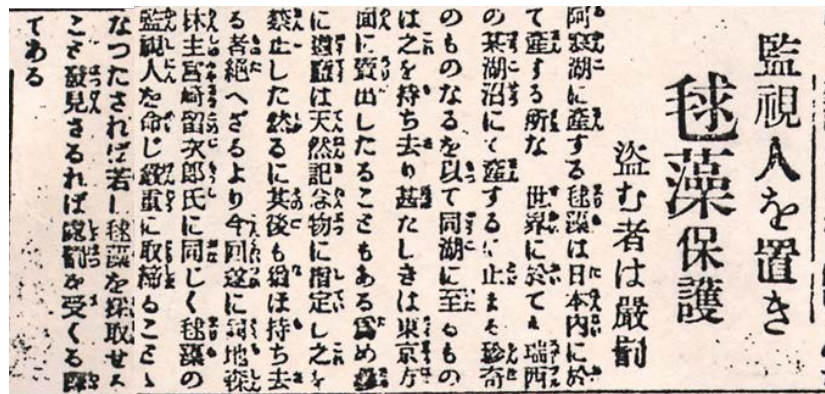 監視人を置き
毬藻保護
盗む者は嚴罰
阿寒湖に産する毬藻は日本内に於
て産する所な 世界に於ても瑞西
の某湖沼にて産するに止まる珍奇
のものなるを以て同湖に至るもの
は之を持ち去り甚だしきは東京方
面に賣出したることもある爲め
に道廳は天然記念物に指定し之を
禁止した然るに其後も猶ほ持ち去
る者絶へざるより今回遂に同地
林主宮崎留次郎氏に同じく毬藻の
監視人を命じ嚴重に取締ることゝ
なつたされば若し毬藻を採取せん
こと發見さるれば嚴罰を受くる
である